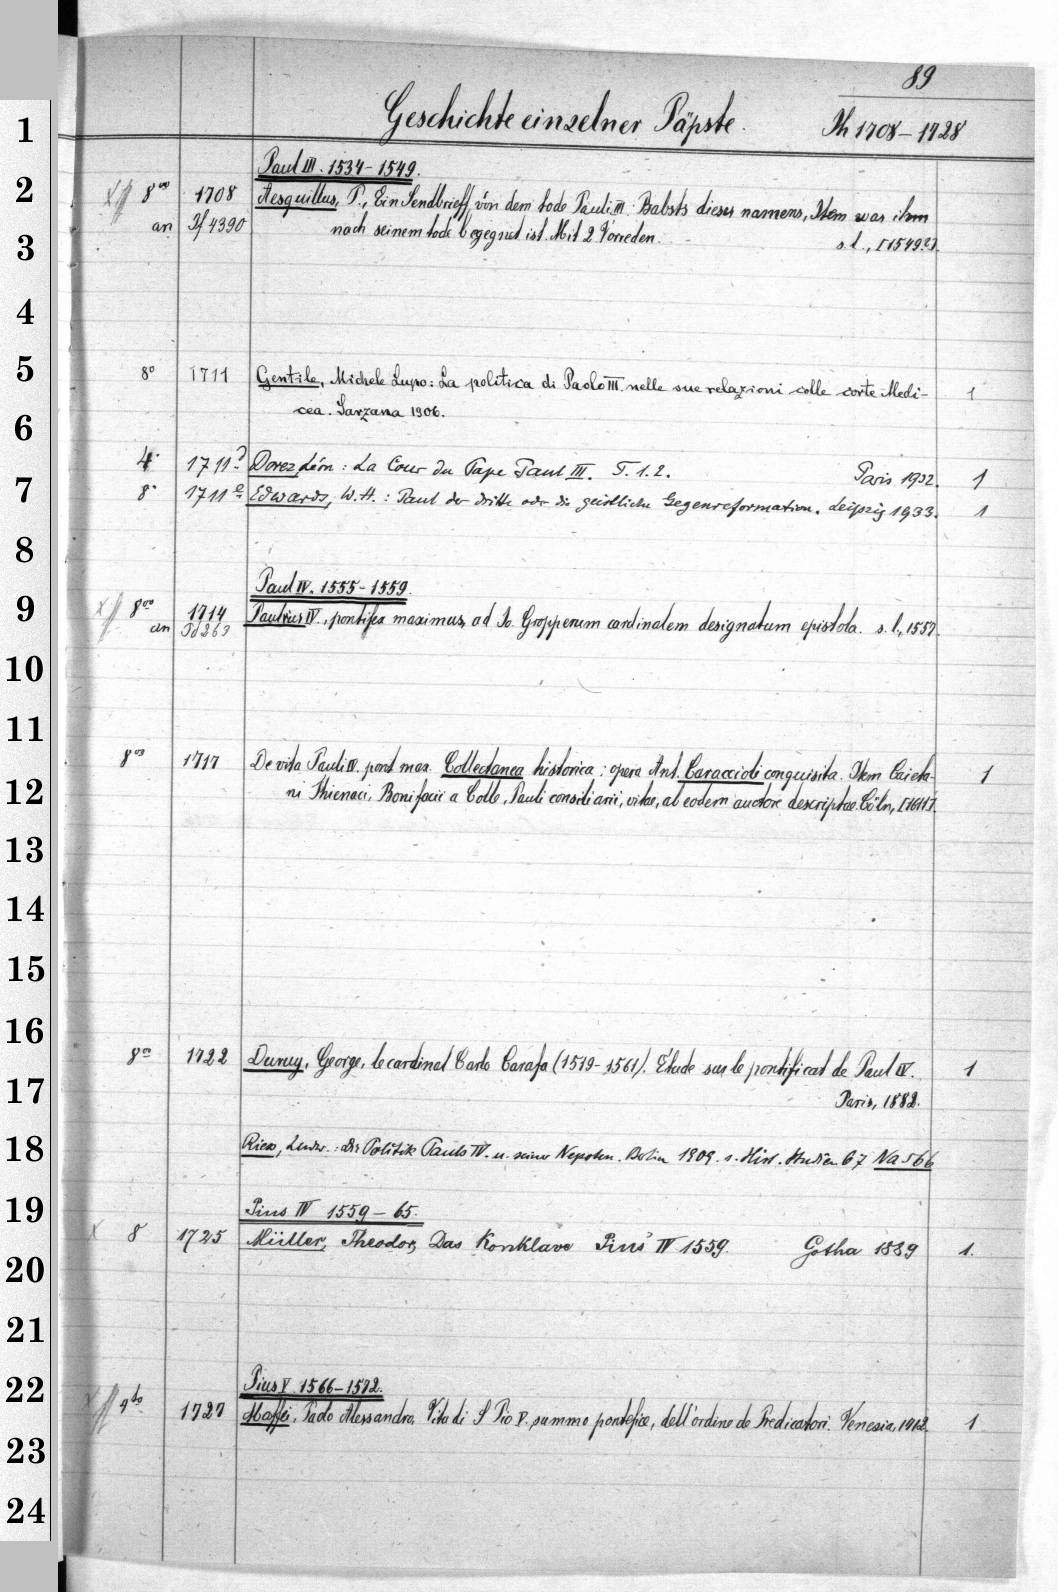 89
Geschichte einzelner Päpste. Th 1708–1728
Paul III. 1534–1549.
8° 1708 Aesquillus, P., Ein Sendbrieff von dem tode Pauli III. Babsts dieses namens, Item was ihm
an If 4390 nach seinem tode begegnet ist. Mit 2 Vorreden. s. l., [1549?].
8° 1711 Gentile, Michele Lupo: La politica di Paolo III. nelle sue relazioni colle corte Medi-
cea. Sarzana 1906. 1
4° 1711 Dorez, Léon: La Cour du Pape Paul III. T. 1. 2. Paris 1932. 1
8° 1711 Edwards, W. H.: Paul der dritte oder die geistliche Gegenreformation. Leipzig 1933. 1
Paul IV. 1555–1559.
8° 1714 IV., pontifex maximus, ad Io. Gropperum cardinalem designatum epistola. s. l., 1557.
an Td 263
8° 1717 De vita Pauli IV. pont max. Collectanea historica: opera Ant. Caraccioli conquisita. Item Caieta- 1
ni Thienaei, Bonifacii a Colle, Pauli consiliarii, vitae, ab eodem auctore descriptae. Cöln,
8° 1722 Duruy, George, le cardinal Carlo Carafa (1519–1561). Étude sur le pontificat de Paul IV. 1
Paris, 1882.
Riess, Ludw.: Die Politik Pauls IV. u. seiner Nepoten. Berlin 1909. s. Hist. Studien 67 Na 566
Pius IV 1559–65.
8 1725 Müller, Theodor, Das Konklave Pius' IV 1559. Gotha 1889 1.
Pius V. 1566–1572.
4to 1727 Maffei, Paolo Alessandro, Vita di S Pio V. summo pontefice, dell'ordine de Predicatori. Venesia, 1712. 1
1
2
3
4
5
6
7
8
9
10
11
12
13
14
15
16
17
18
19
20
21
22
23
24